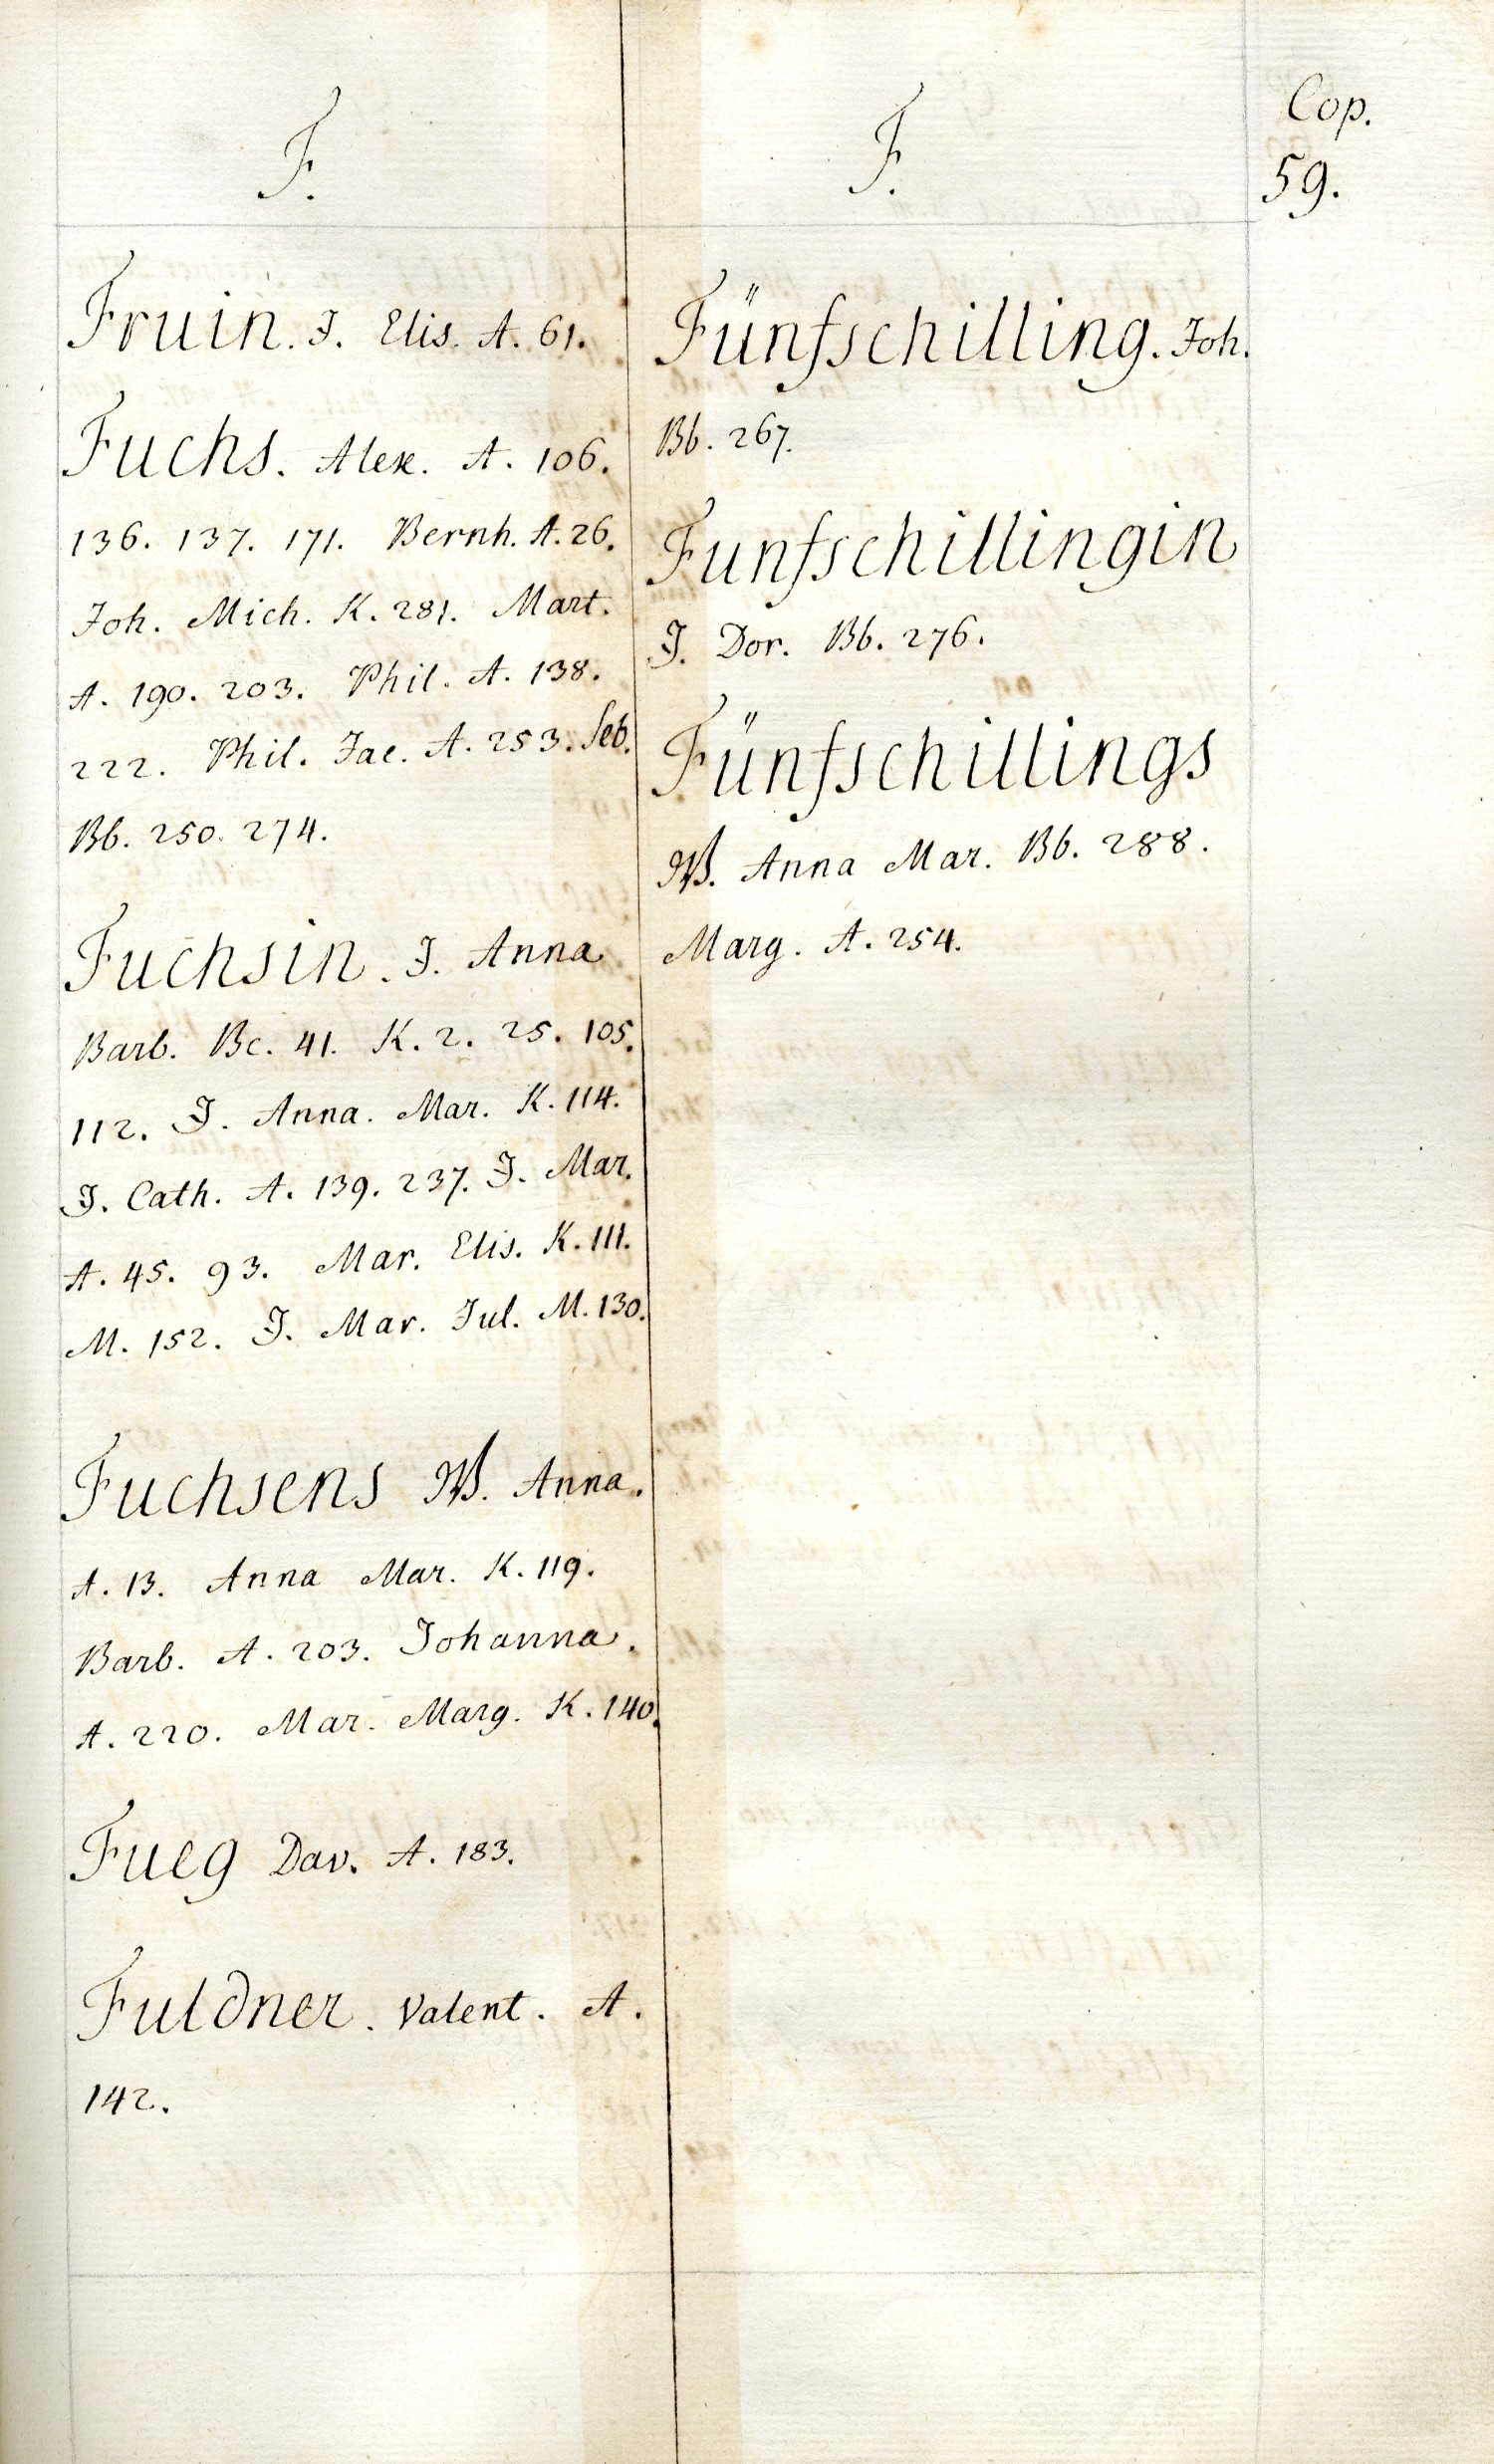 Cop.
59.
F.
Fruin. J. Elis. A. 61.
Fuchs. Alex. A. 106.
136. 137. 171. Bernh. A. 26.
Joh. Mich. K. 281. Mart.
A. 190. 203. Phil. A. 138.
222. Phil. Jac. A. 253. Seb.
Bb. 250. 274.
Fuchsin. J. Anna
Barb. Bc. 41. K. 2. 25. 105.
112. J. Anna. Mar. K. 114.
J. Cath. A. 139. 237. J. Mar.
A. 45. 93. Mar. Elis. K. 111.
M. 152. J. Mar. Jul. M. 130.
Fuchsens W. Anna.
A. 13. Anna Mar. K. 119.
Barb. A. 203. Johanna.
A. 220. Mar. Marg. K. 140.
Fueg Dav. A. 183.
Fuldner. Valent. A.
142.
F.
Fünfschilling. Joh.
Bb. 267.
Funfschillingin
J. Dor. Bb. 276.
Fünfschillings
W. Anna Mar. Bb. 288.
Marg. A. 254.